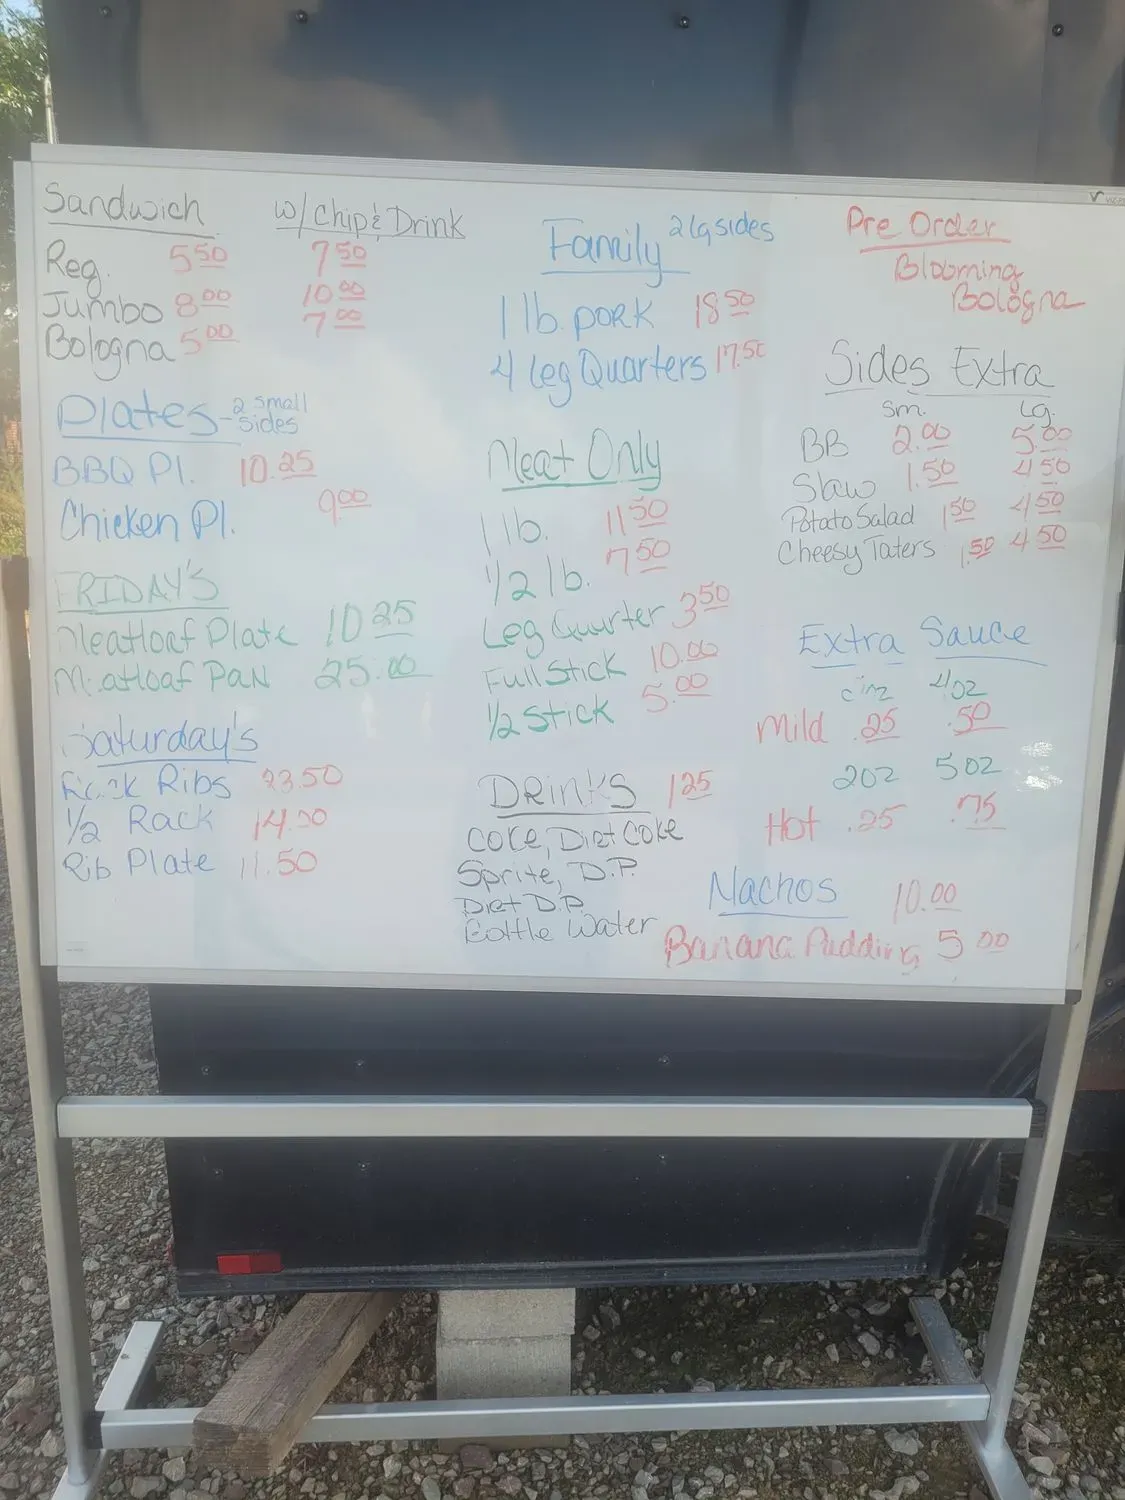 Sandwich w/ Chip & Drink
Reg. 5.50 7.50
Jumbo 8.00 10.00
Bologna 5.00 7.00
Plates - 2 small sides
BBQ Pl. 10.25
Chicken Pl. 9.00
FRIDAY'S
Meatloaf Plate 10.25
Meatloaf Pan 25.00
Saturday's
Rack Ribs 23.50
1/2 Rack 14.00
Rib Plate 11.50
Family 2 lg sides
1 lb. pork 18.50
4 Leg Quarters 17.50
Meat Only
1 lb. 11.50
1/2 lb. 7.50
Leg Quarter 3.50
Full Stick 10.00
1/2 Stick 5.00
Drinks 1.25
Coke, Diet Coke
Sprite, D.P.
Diet D.P.
Bottle Water
Pre Order
Blooming
Bologna
Sides Extra
sm. Lg.
BB 2.00 5.00
Slaw 1.50 4.50
Potato Salad 1.50 4.50
Cheesy Taters 1.50 4.50
Extra Sauce
4oz
Mild .25 .50
2oz 5oz
Hot .25 .75
Nachos 10.00
Banana Pudding 5.00